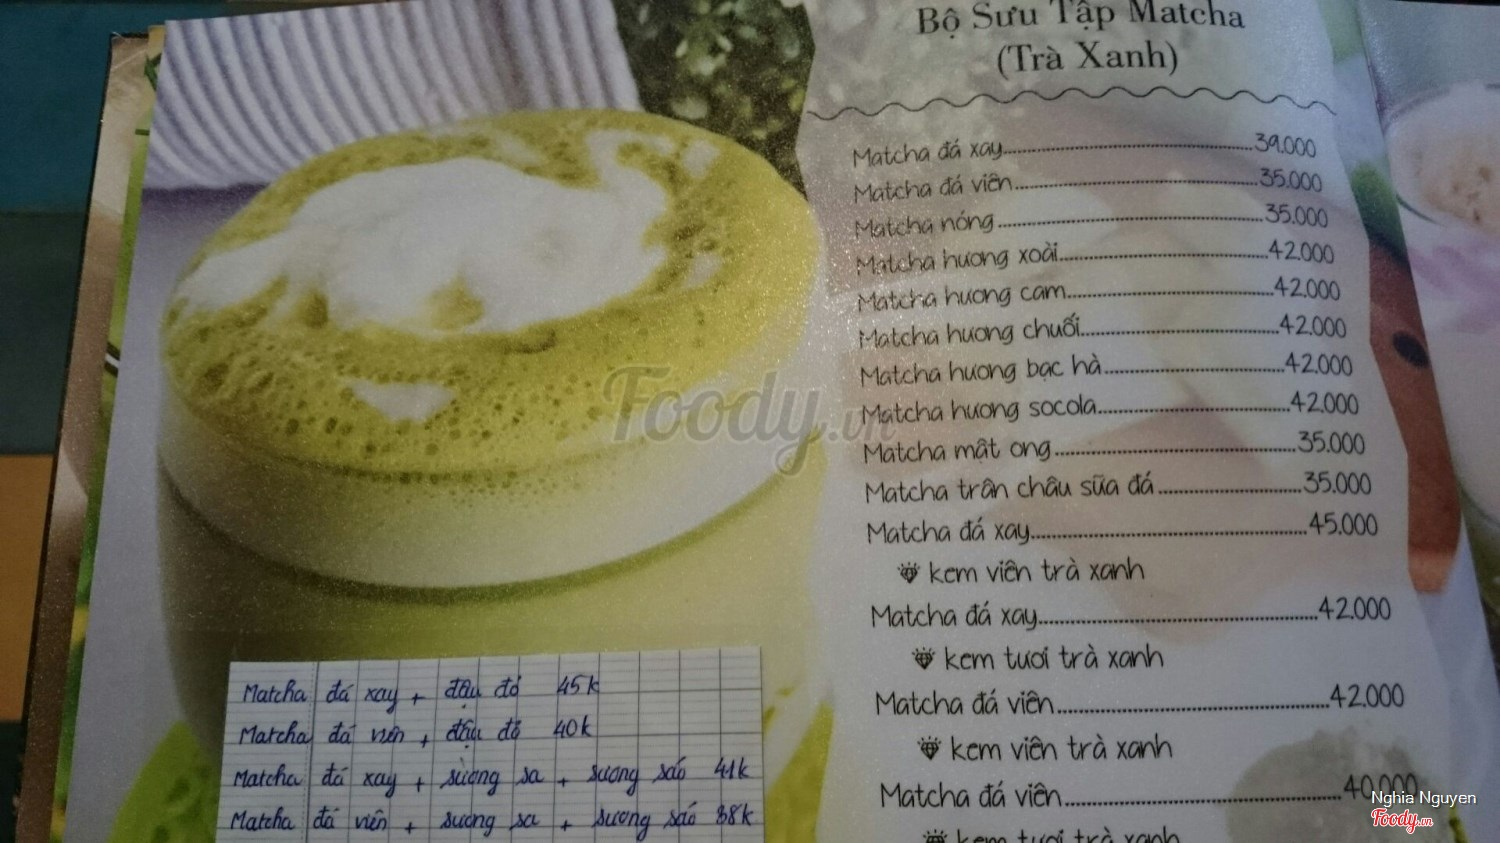 Bộ Sưu Tập Matcha
(Trà Xanh)
Matcha đá xay 39.000
Matcha đá viên 35.000
Matcha nóng 35.000
Matcha hương xoài 42.000
Matcha hương cam 42.000
Matcha hương chuối 42.000
Matcha hương bạc hà 42.000
Matcha hương socola 42.000
Matcha mật ong 35.000
Matcha trân châu sữa đá 35.000
Matcha đá xay 45.000
kem viên trà xanh
Matcha đá xay 42.000
kem tươi trà xanh
Matcha đá viên 42.000
kem viên trà xanh
Matcha đá viên 40.000
kem tươi trà xanh
Matcha đá xay + đậu đỏ 45k
Matcha đá viên + đậu đỏ 40k
Matcha đá xay + sương sa + sương sáo 41k
Matcha đá viên + sương sa + sương sáo 38k
Foody.vn
Nghia Nguyen
Foody.vn